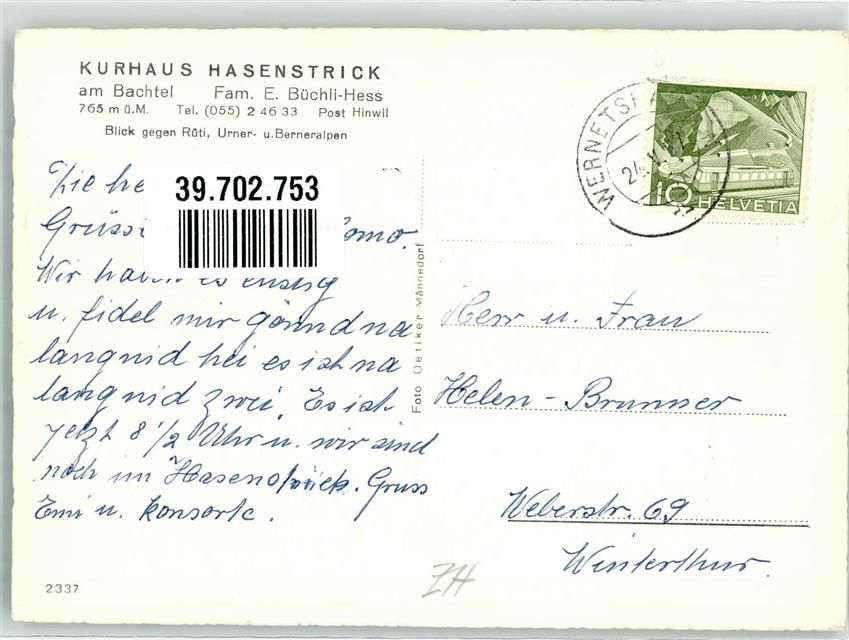 KURHAUS HASENSTRICK
am Bachtel Fam. E. Büchli-Hess
765 m ü.M. Tel. (055) 2 46 33 Post Hinwil
Blick gegen Rüti, Urner- u. Berneralpen
39.702.753
Die
Grüss
Wir haben es
u. fidel mir gönnd na
langnid hei es ist na
langnid zwei. Es ist
jetzt 8 1/2 Uhr u. wir sind
noch im Hasenstrick. Gruss
Emi u. Konsorte.
2337
Foto Oetiker Männedorf
WERNETSH
10 HELVETIA
Herr u. Frau
Helen-Brunner
Weberstr. 69
Winterthur.
ZH